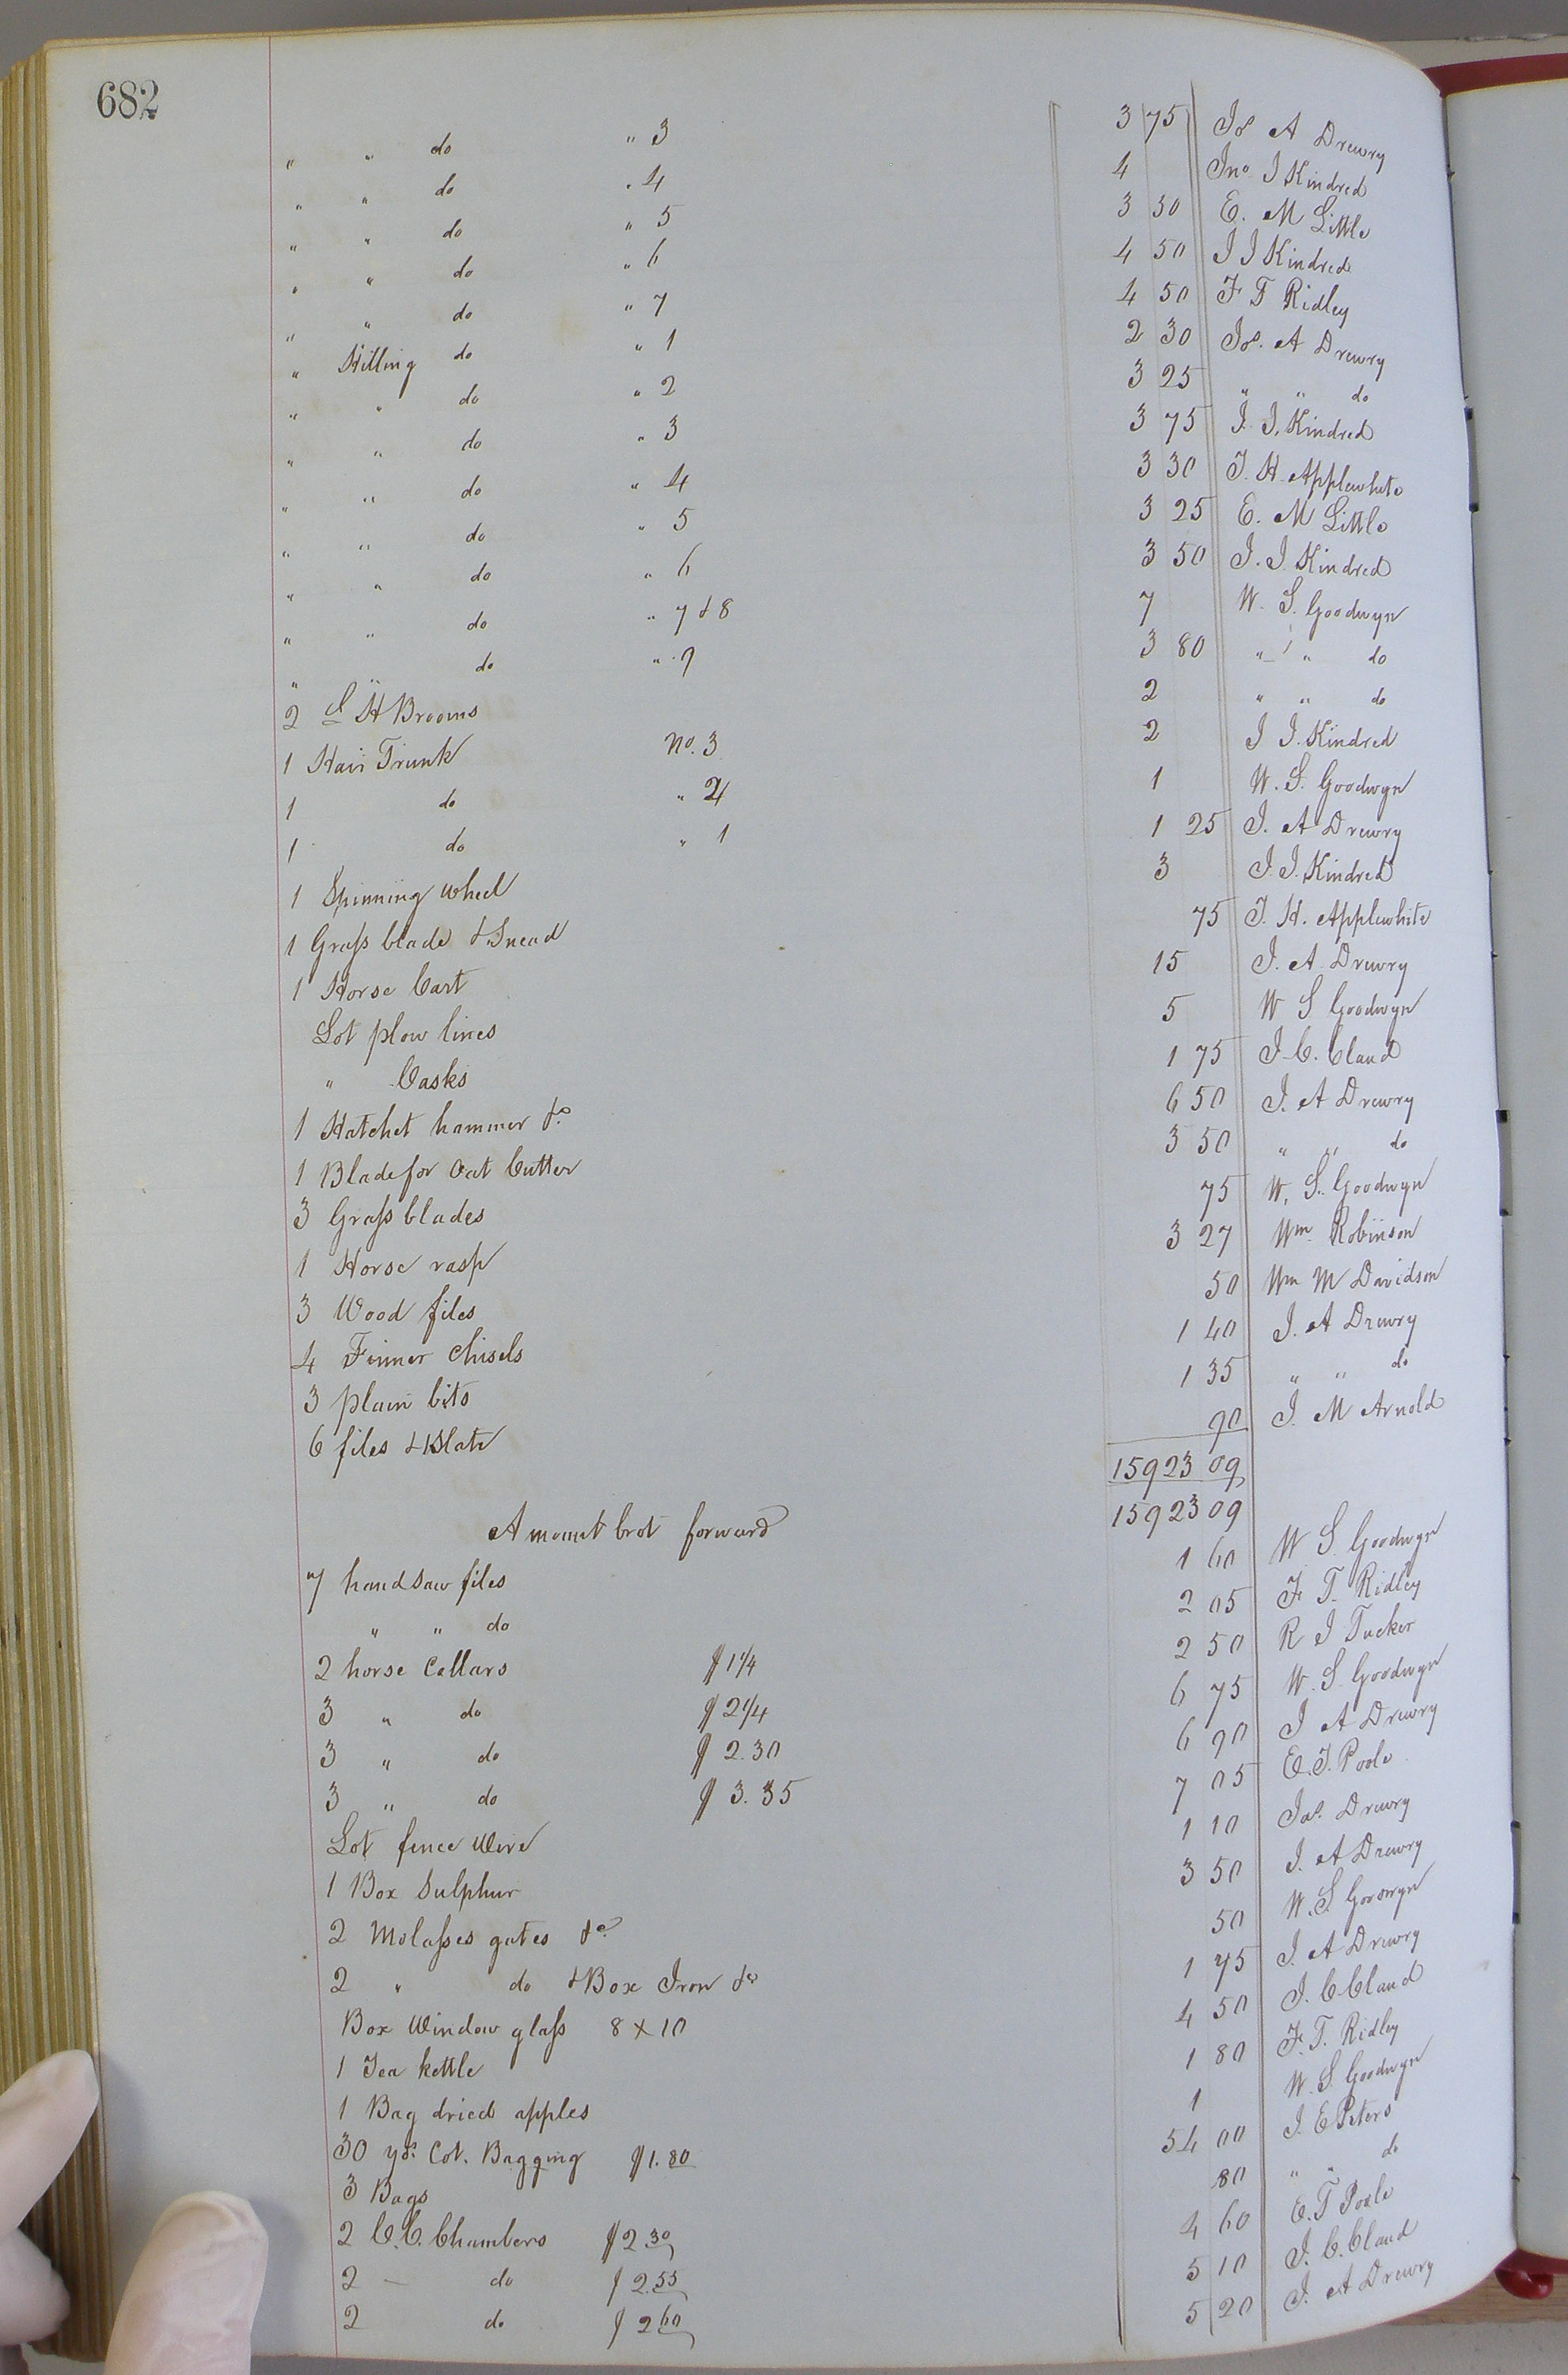 682
" " do " 3 3 75 Js A Drewry
" " do " 4 4 Jno. J Kindred
" " do " 5 3 30 E. M Little
" " do " 6 4 50 J J Kindred
" " do " 7 4 50 F T Ridley
" Hilling do " 1 2 30 Js. A Drewry
" " do " 2 3 25 " " do
" " do " 3 3 75 J. J. Kindred
" " do " 4 3 30 T. H. Applewhite
" " do " 5 3 25 E. M Little
" " do " 6 3 50 J. J. Kindred
" " do " 7 & 8 7 W. S. Goodwyn
" " do " 9 3 80 " " do
2 S H Brooms 2 " " do
1 Hair Trunk No. 3 2 J J. Kindred
1 do " 2 1 W. S. Goodwyn
1 do " 1 1 25 J. A Drewry
1 Spinning wheel 3 J. J. Kindred
1 Grass blade & Snead 75 T. H. Applewhite
1 Horse Cart 15 J. A. Drewry
Lot plow lines 5 W S Goodwyn
" Casks 1 75 J. C. Cland
1 Hatchet hammer &c 6 50 J. A Drewry
1 Blade for Oat Cutter 3 50 " " do
3 Grass blades 75 W. S. Goodwyn
1 Horse rasp 3 27 Wm. Robinson
3 Wood files 50 Wm M Davidson
4 Firmer Chisels 1 40 J. A Drewry
3 plain bits 1 35 " " do
6 files & Slate 90 J. M Arnold
15923 09
Amount brot forward 15923 09
7 handsaw files 1 60 W S. Goodwyn
" " do 2 05 F. T. Ridley
2 horse Collars $1 1/4 2 50 R J Tucker
3 " do $2 1/4 6 75 W. S. Goodwyn
3 " do $2.30 6 90 J A Drewry
3 " do $3.35 7 05 E. T. Poole
Lot fence Wire 1 10 Jas. Drewry
1 Box Sulphur 3 50 J. A Drewry
2 Molasses gates &c 50 W. S Goodwyn
2 " do & Box Iron &c 1 75 J. A Drewry
Box Window glass 8 x 10 4 50 J. C. Cland
1 Tea kettle 1 80 F. T. Ridley
1 Bag dried apples 1 W. S. Goodwyn
30 yds. Cot. Bagging $1.80 54 00 J. E Peters
3 Bags 80 " " do
2 C. C. Chambers $2 30 4 60 E. T Poole
2 – do $2.55 5 10 J. C. Cland
2 do $2 60 5 20 J. A Drewry